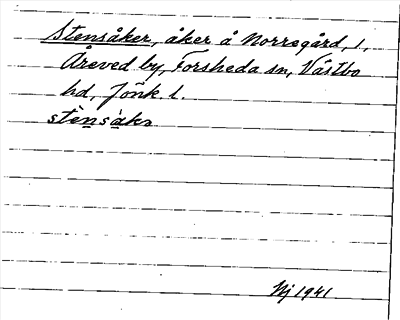 Stensåker, åker å Norregård, 1,
Åreved by, Forsheda sn, Västbo
hd, Jönk. l.
stènsàkr
Nj 1941